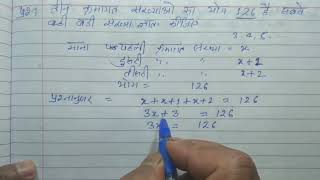 प्रश्न तीन क्रमागत संख्याओं का योग 126 है सबसे
बड़ी संख्या ज्ञात कीजिए
3, 4, 5
माना पहली क्रमागत संख्या = x
दूसरी " " x+2
तीसरी " " x+2
योग = 126
प्रश्नानुसार = x + x+1 + x+2 = 126
3x + 3 = 126
3x = 126